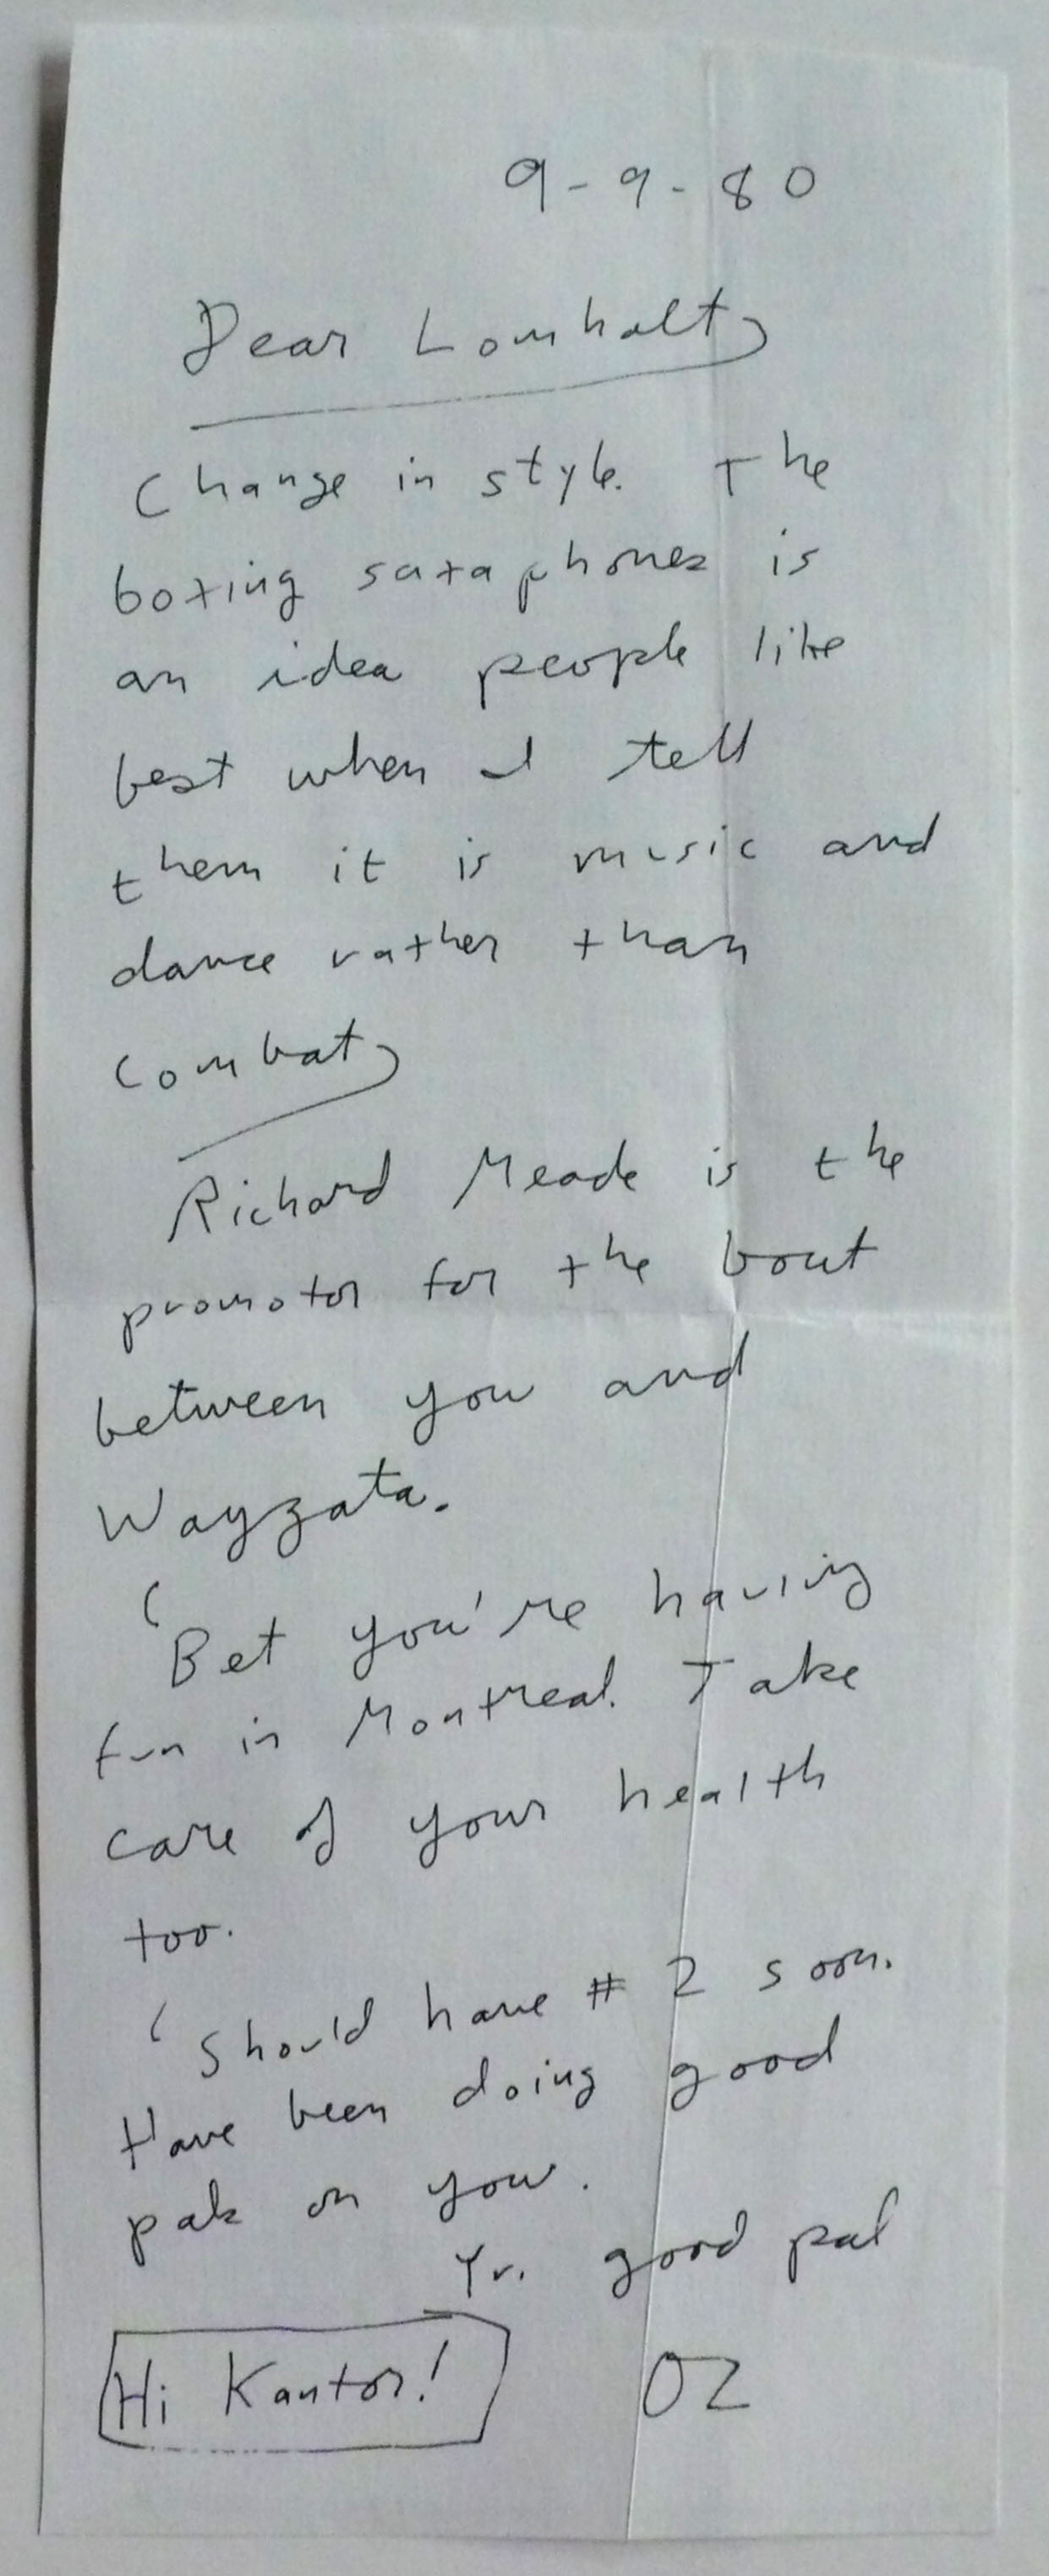 9-9-80
Dear Lomholt
Change in style. The
boxing saxaphones is
an idea people like
best when I tell
them it is music and
dance rather than
combat
Richard Meade is the
promotor for the bout
between you and
Wayzata.
'Bet you're having
fun in Montreal. Take
care of your health
too.
'Should have # 2 soon.
Have been doing good
pak on you.
Yr. good pal
Hi Kantor! OZ